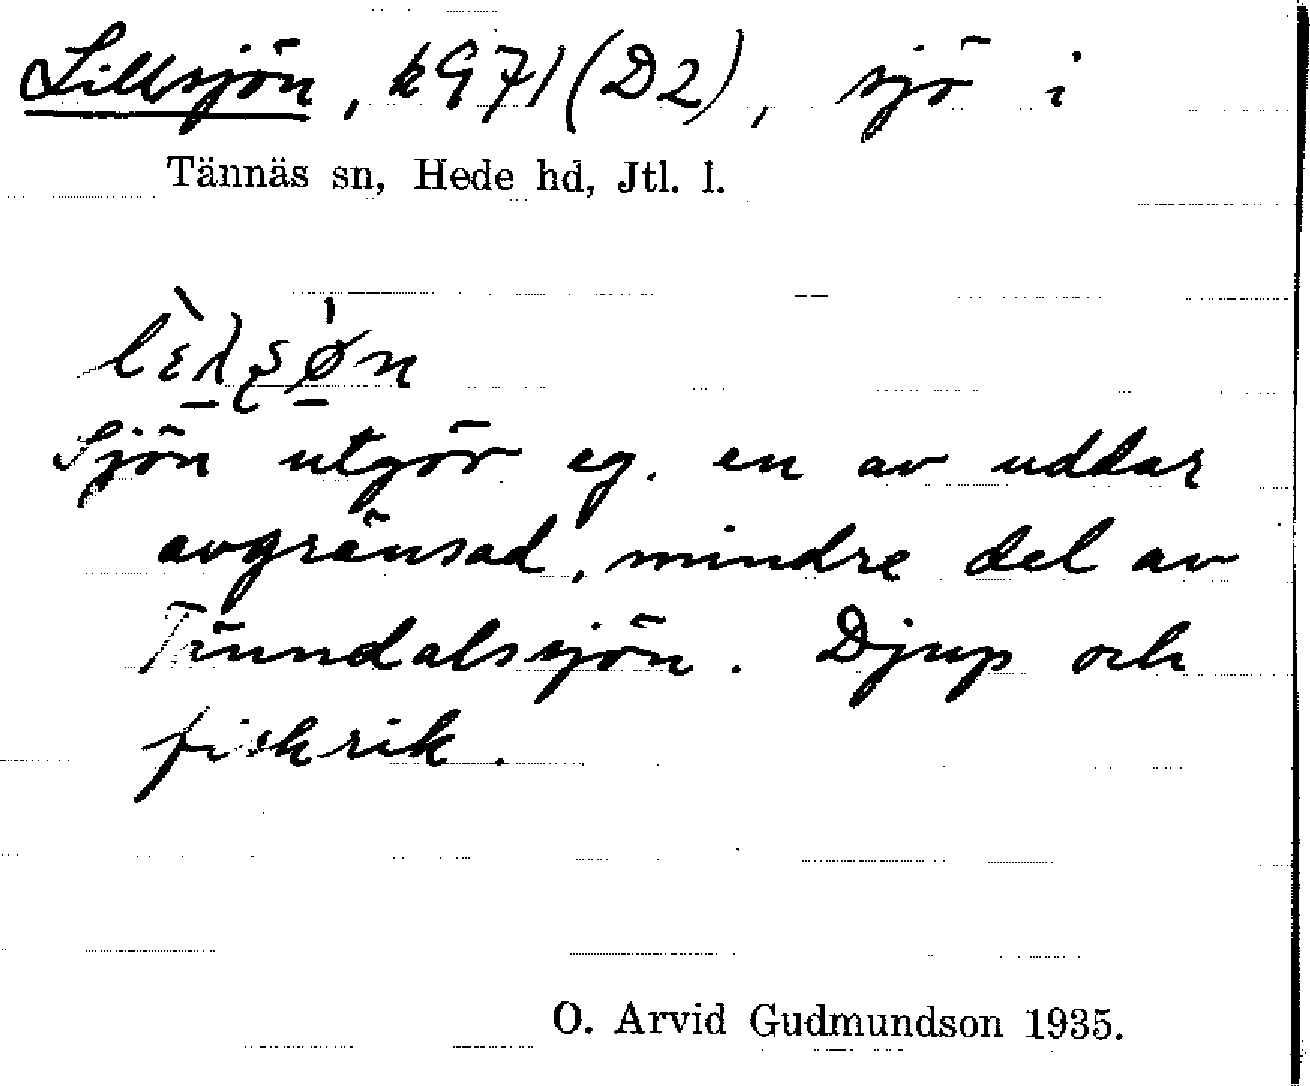 Lillsjön, k971 (D2), sjö i
Tännäs sn, Hede hd, Jtl. l.
Sjön utgör eg. en av uddar
avgränsad, mindre del av
Tänndalssjön. Djup och
fiskrik.
O. Arvid Gudmundson 1935.